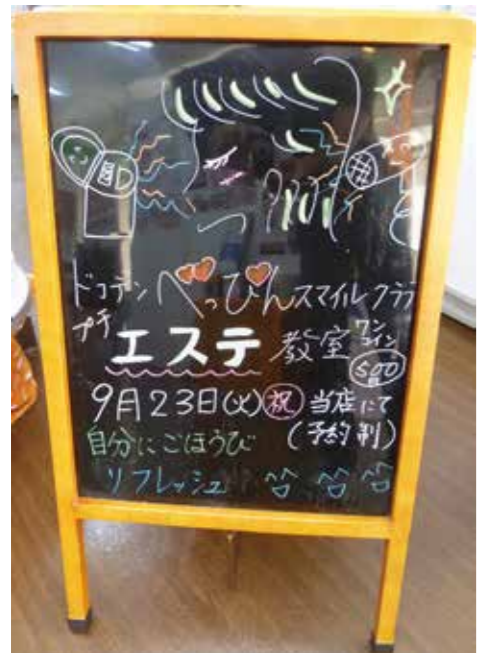 ドコデンべっぴんスマイルクラブ
プチエステ教室 ワンコイン 500円
9月23日(火)祝 当店にて
自分にごほうび (予約制)
リフレッシュ